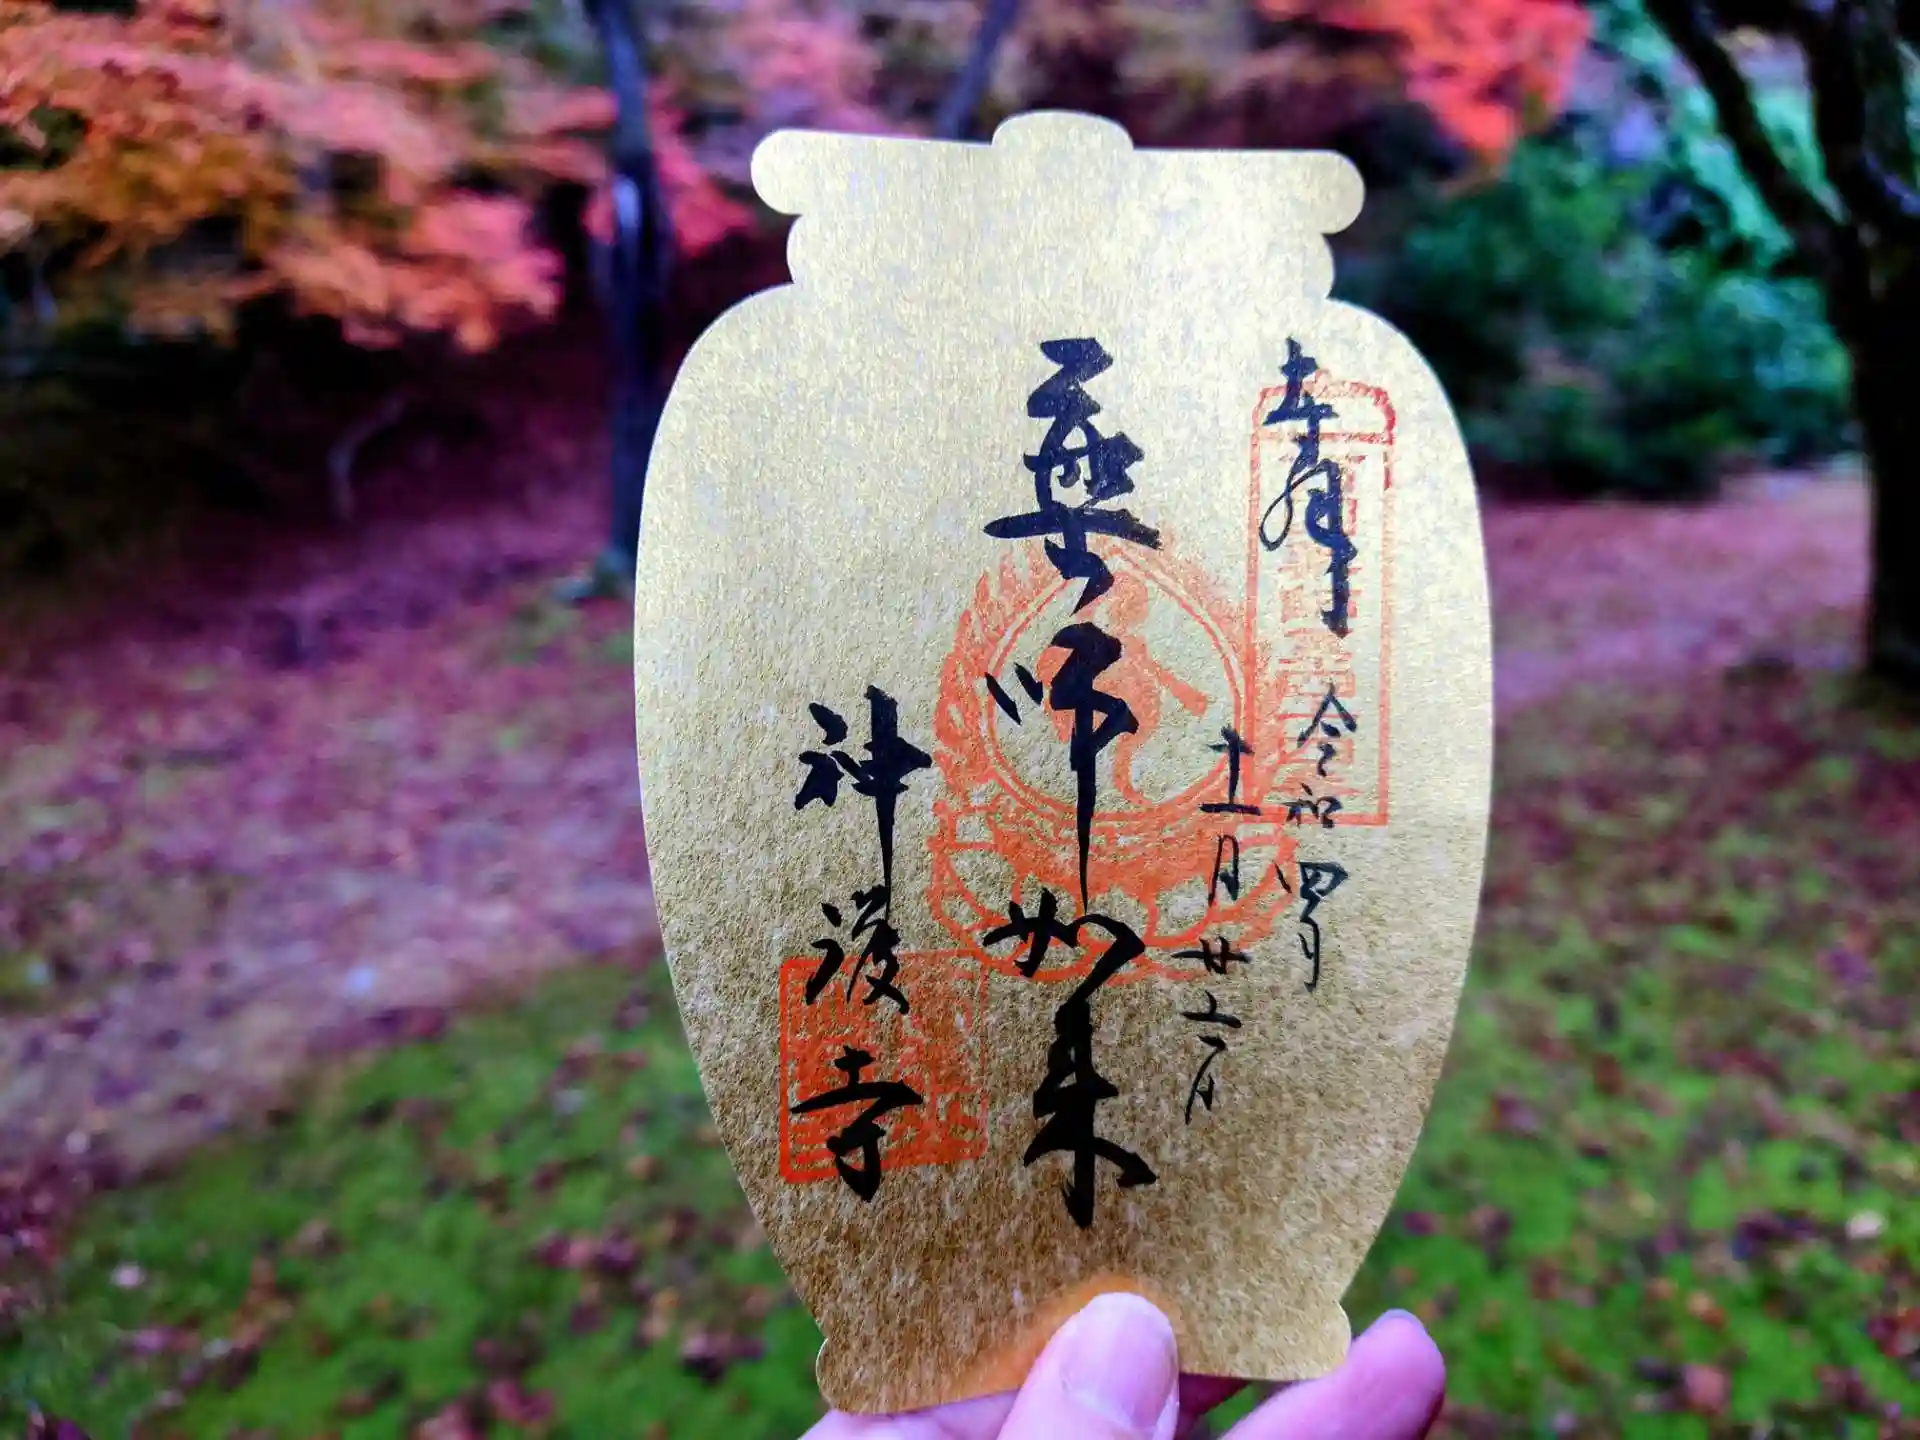 奉拝
令和四年
十一月廿二日
薬師如来
神護寺